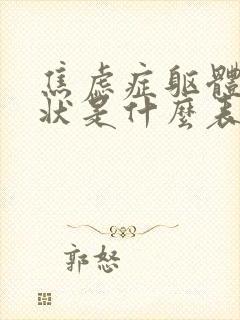 焦虑症躯體
狀是什麼表
郭怒